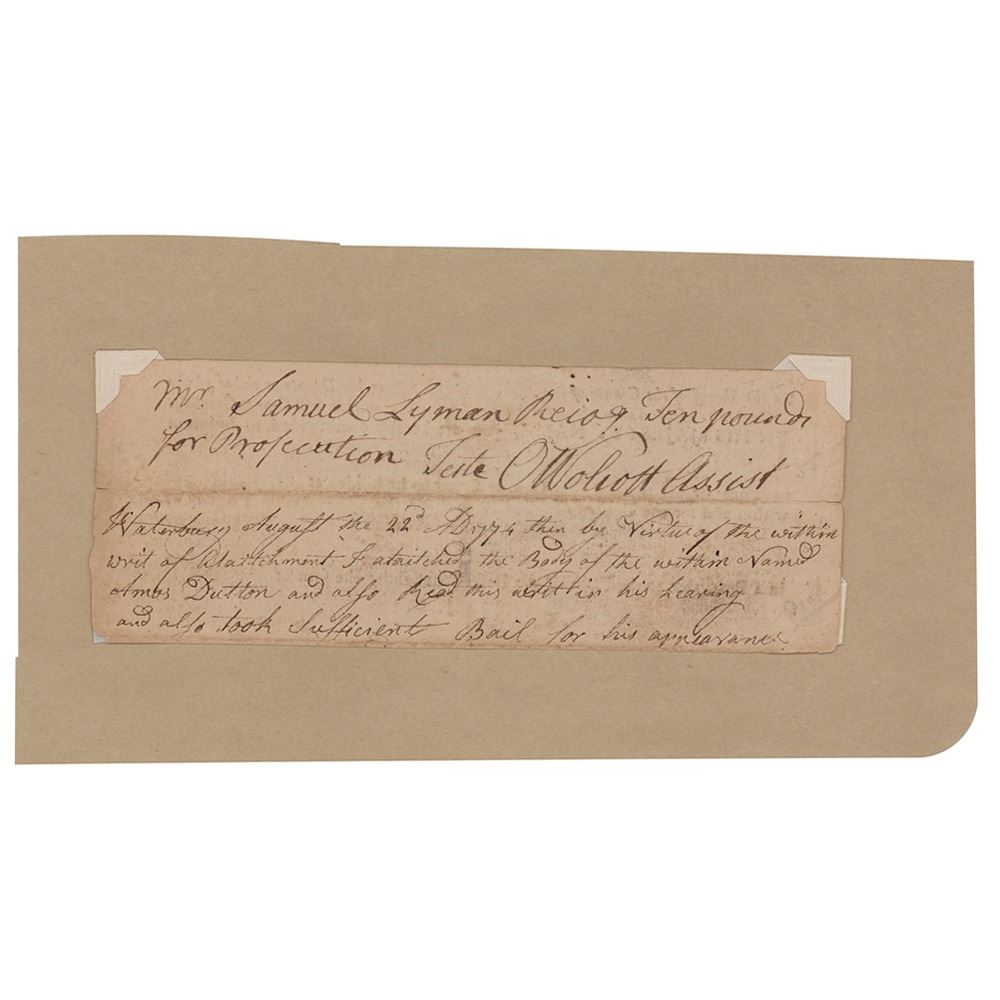 Mr. Samuel Lyman Recog. Ten pounds
for Prosecution Teste OWolcott Assist
Waterbury August the 22d AD 1774 then by Virtue of the within
writ of Attatchment I attatched the Body of the within Named
Amos Dutton and also Read this writ in his hearing
and also took Sufficient Bail for his appearance